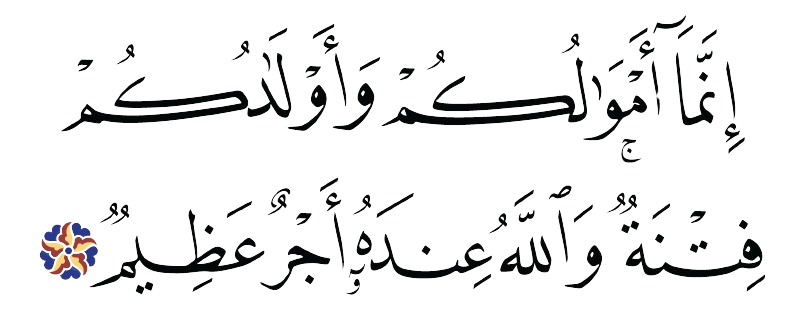 إِنَّمَآ أَمْوَٰلُكُمْ وَأَوْلَٰدُكُمْ
فِتْنَةٌ ۚ وَٱللَّهُ عِندَهُۥٓ أَجْرٌ عَظِيمٌ